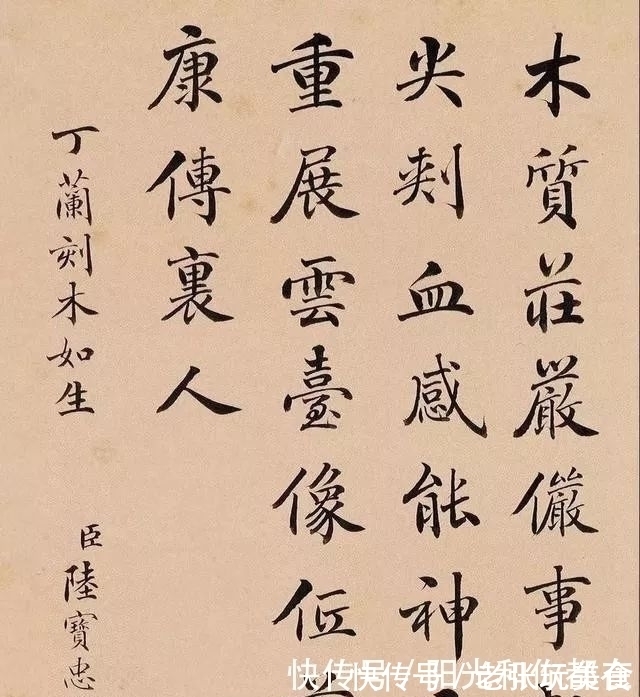 木質莊嚴儼事
尖刾血感能神
重展雲臺像
康傳裏人
丁蘭刻木如生
臣陸寶忠
快传号